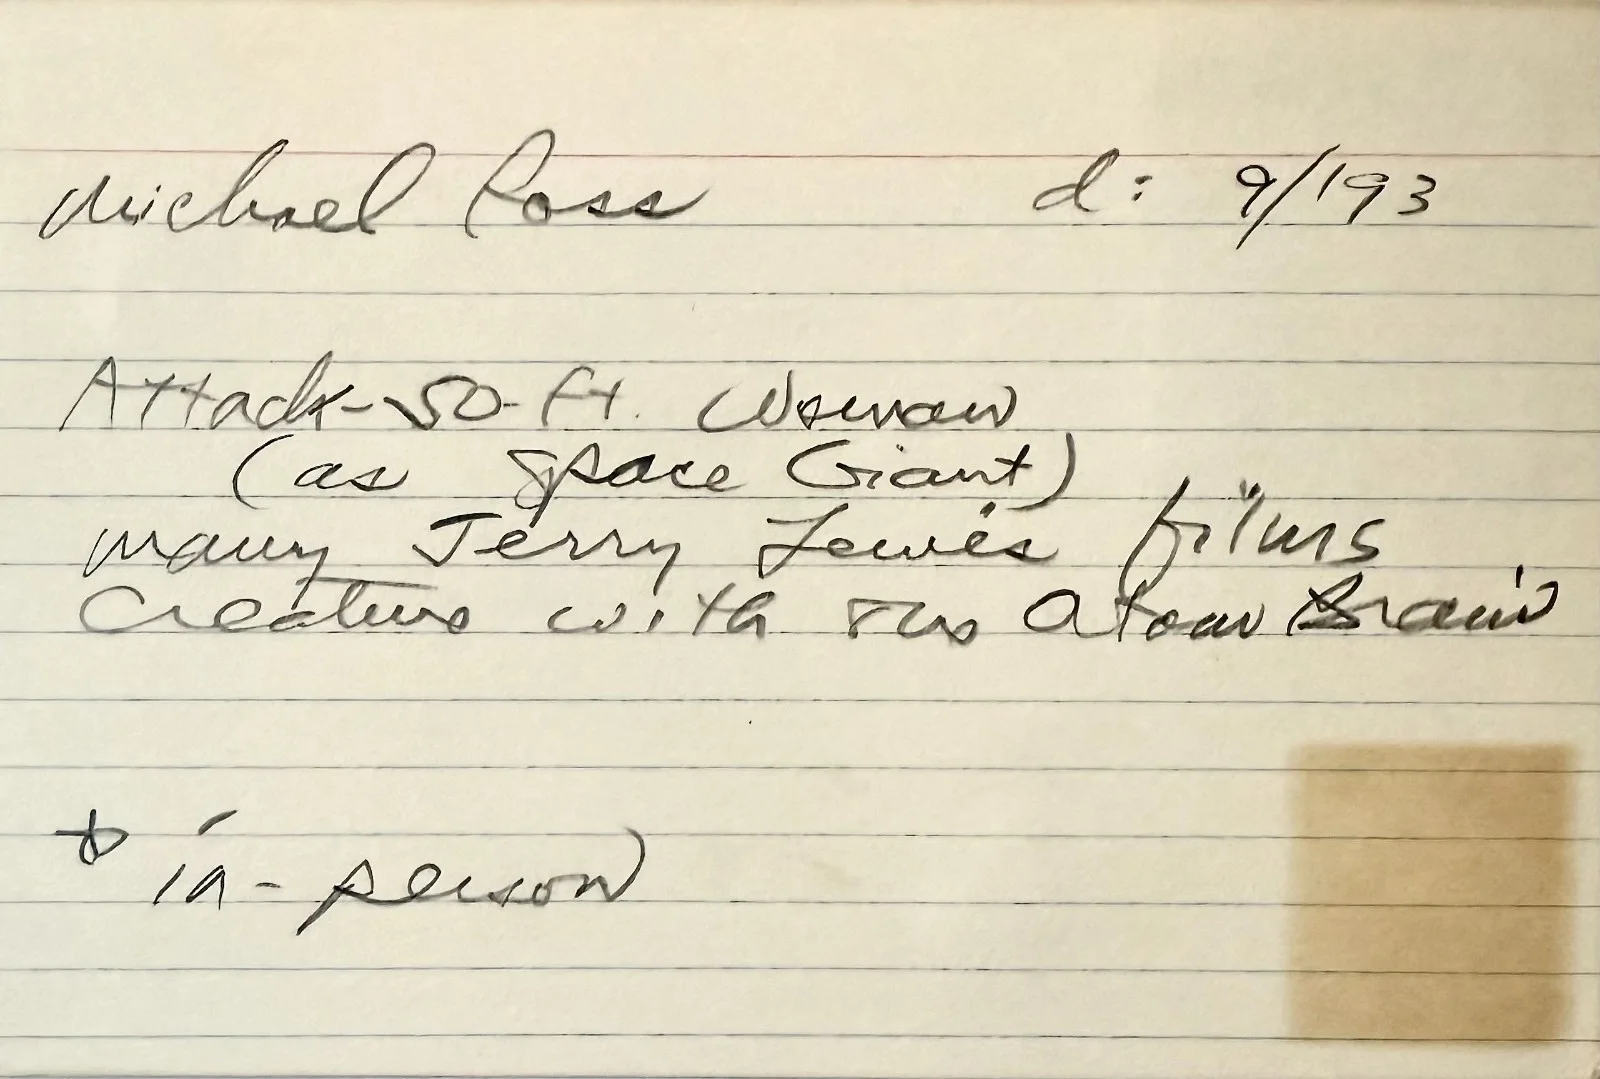 Michael Ross d: 9/'93
Attack-50-ft. Woman
(as Space Giant)
many Jerry Lewis films
Creature with the Atom Brain
* in-person